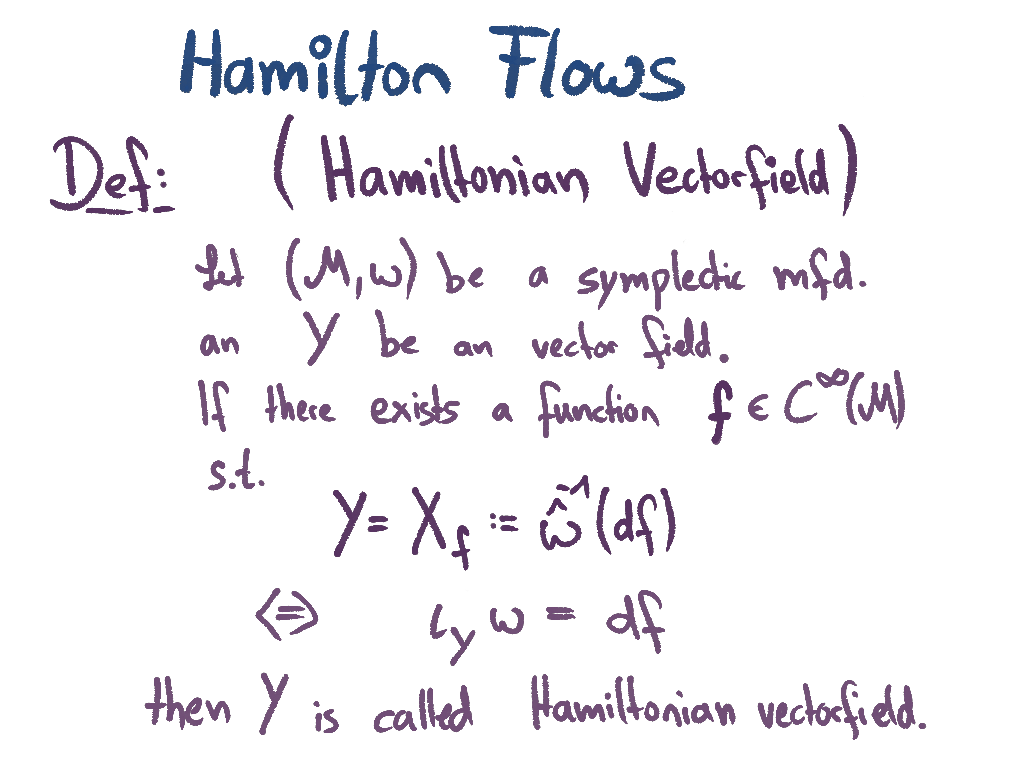 Hamilton Flows
Def: (Hamiltonian Vectorfield)
Let (M, ω) be a symplectic mfd.
an Y be an vector field.
If there exists a function f ∈ C^∞(M)
s.t.
Y = X_f := ω̂^{-1}(df)
⟨=⟩ ι_Y ω = df
then Y is called Hamiltonian vectorfield.